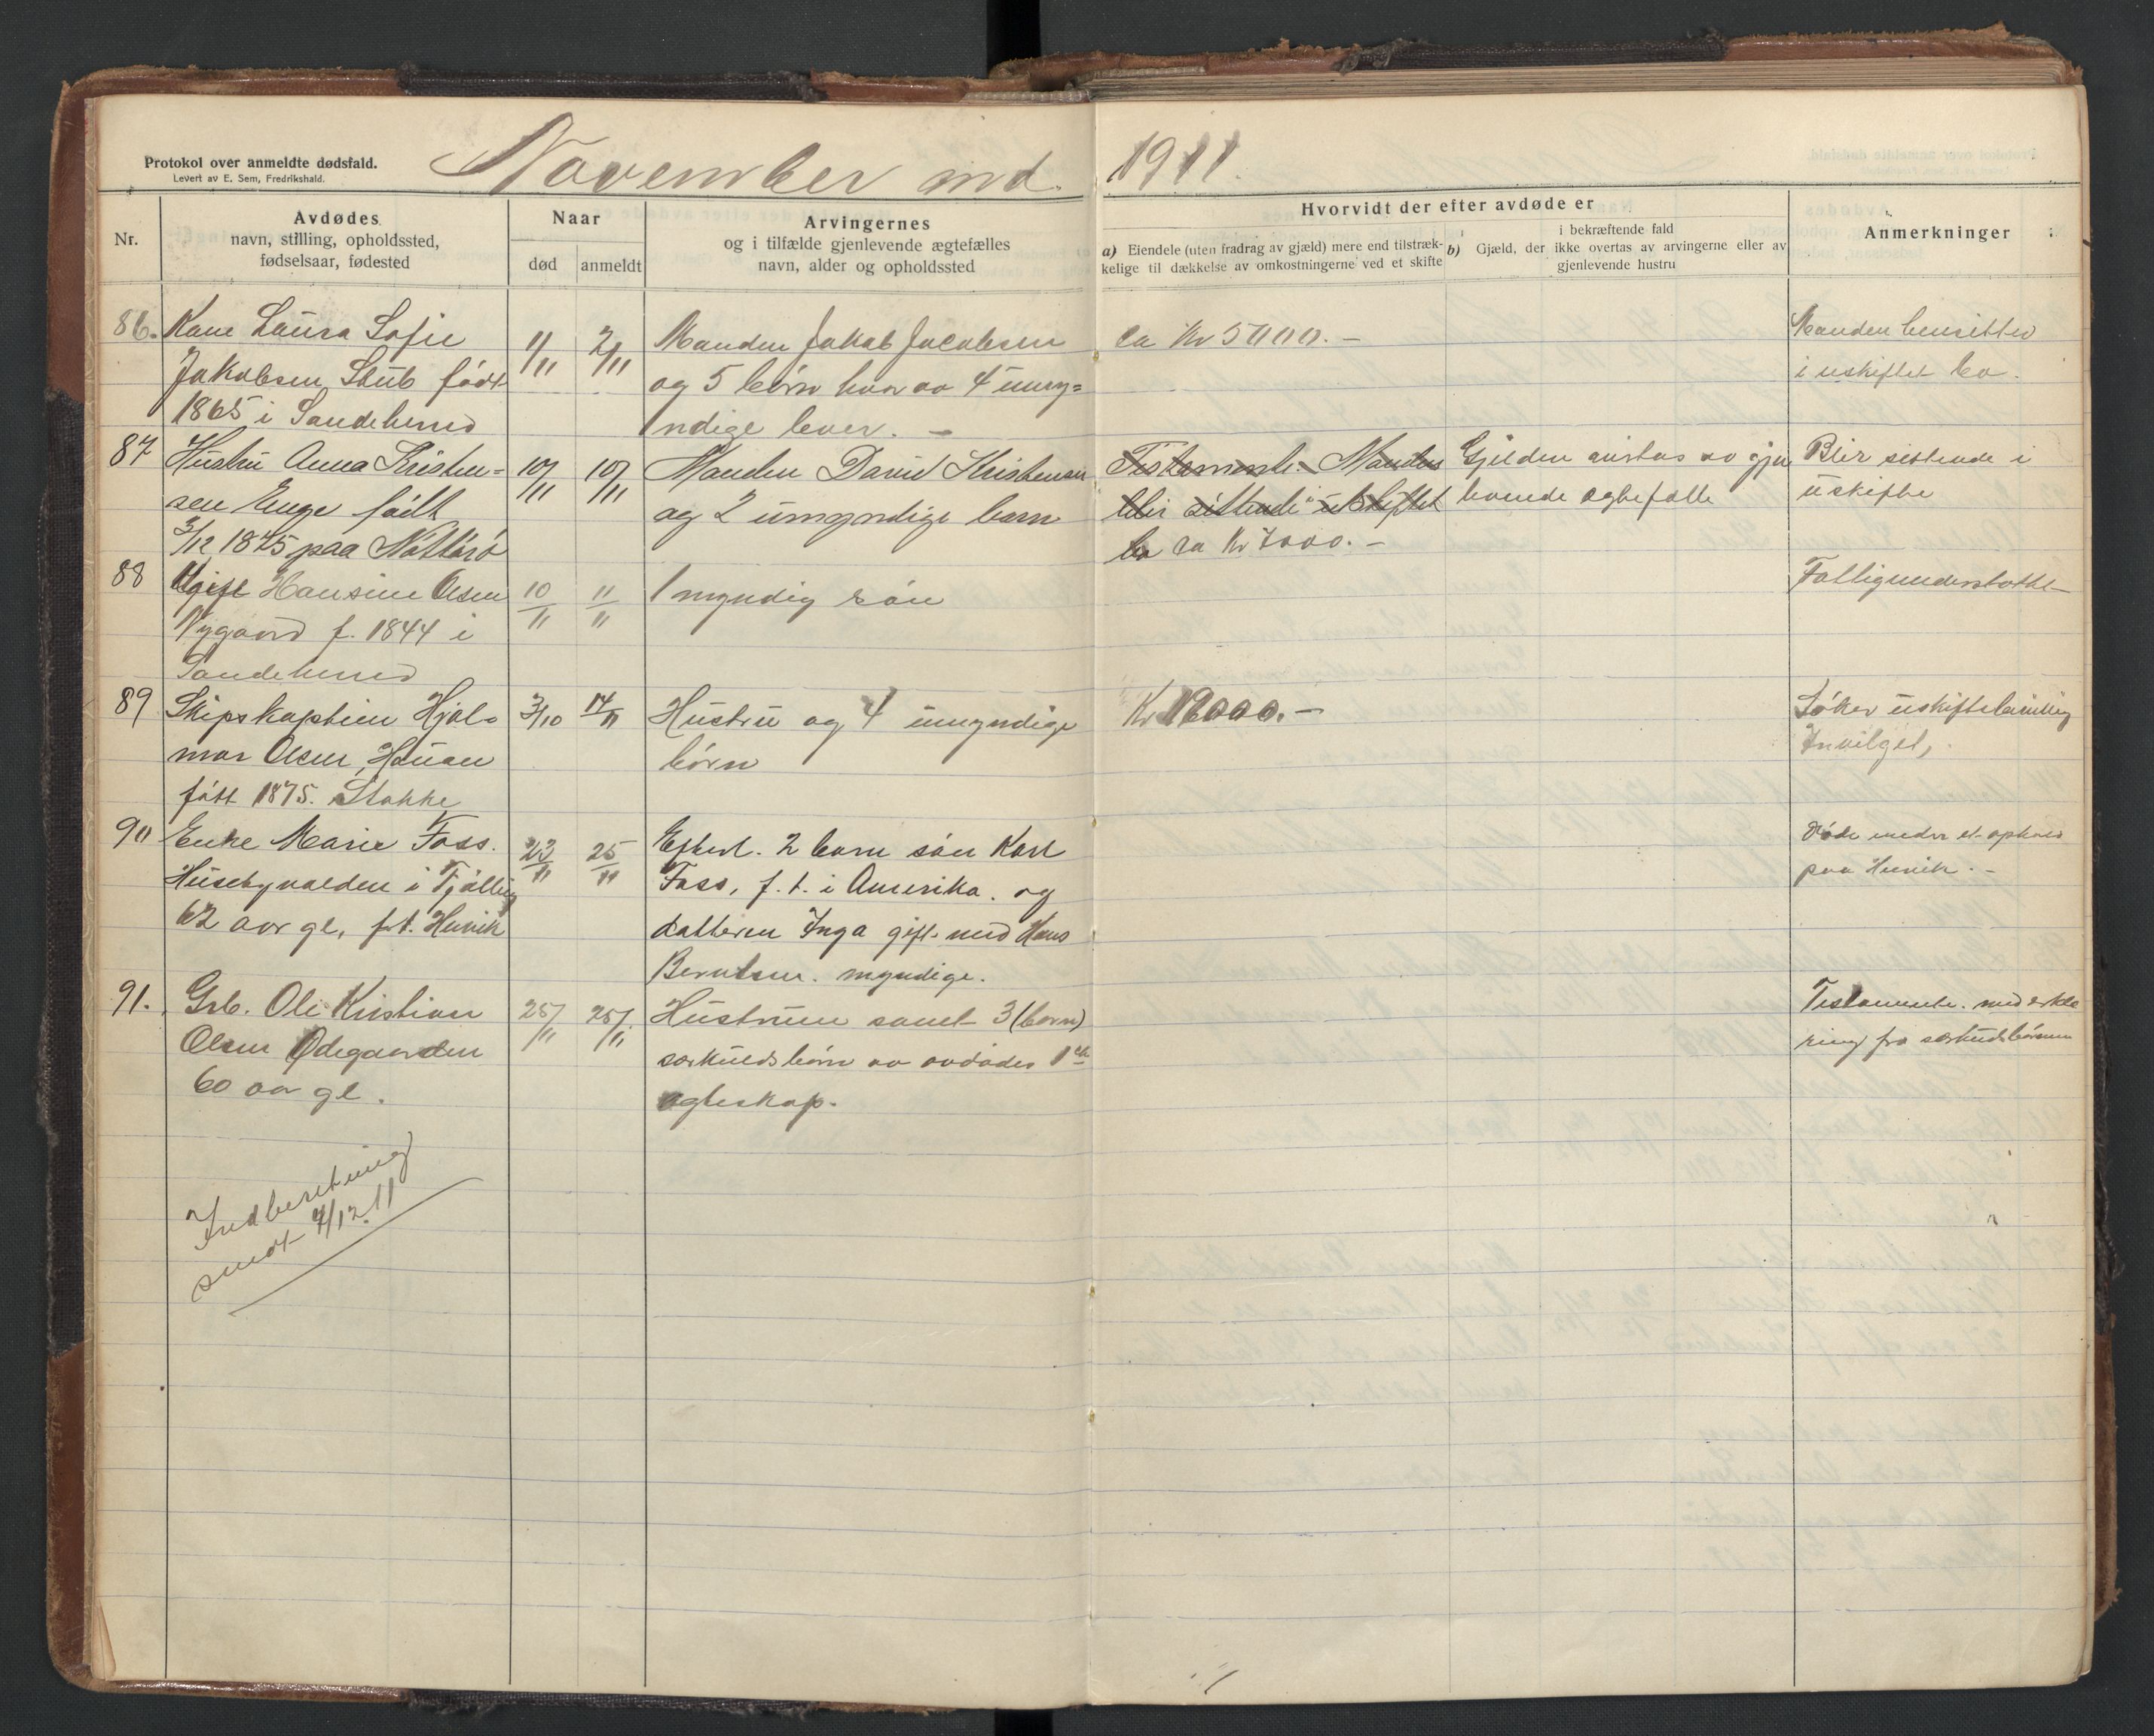 November md. 1911.
Protokol over anmeldte dødsfald.
Levert av E. Sem, Fredrikshald.
Nr.
Avdødes
navn, stilling, opholdssted,
fødselsaar, fødested
Naar
død
anmeldt
Arvingernes
og i tilfælde gjenlevende ægtefælles
navn, alder og opholdssted
Hvorvidt der efter avdøde er
a) Eiendele (uten fradrag av gjæld) mere end tilstræk-
kelige til dækkelse av omkostningerne ved et skifte
i bekræftende fald
b) Gjæld, der ikke overtas av arvingerne eller av
gjenlevende hustru
Anmerkninger
86. Kone Laura Sofie
Jakobsen Stub født
1865 i Sandeherred
1/11
2/11
Manden Jakob Jacobsen
og 5 börn hvor av 4 umy=
ndige lever. –
ca Kr 5000. –
Manden hensitter
i uskiftet bo.
87 Hustru Anna Kristen=
sen Enge født
3/12 1875 paa Nötterö
10/11
10/11
Manden David Kristensen
og 2 umyndige barn
Testamente. Manden
blir sittende i uskiftet
bo ca Kr 7000. –
Gjelden avertas av gjen
levende egtefalle
Blir sittende i
uskifte
88 Ugift Hansine Olsen
Nygaard f. 1844 i
Sandeherred
10/11
11/11
1 myndig sön
Fattigunderstøttet
89 Skipskaptein Hjal=
mar Olsen, Hauan
fött 1875. Stokke
3/10
14/11
Hustru og 4 umyndige
börn
Kr 12000. –
Söker uskiftebevilling
Invilget,
90 Enke Marie Foss.
Husebyvalden i Tjölling
62 aar gl, f.t. Huvik
23/11
25/11
Efterl. 2 barn sön Karl
Foss, f. t. i Amerika. og
datteren Inga gift med Hans
Berntsen. myndige.
Döde under et ophold
paa Huvik. –
91. Grb. Ole Kristian
Olsen Ødegaarden
60 aar gl.
25/11
25/11
Hustruen samt 3 (barn)
særkuldsbörn av avdödes 1ste
egteskap.
Testamente. med erklæ
ring fra særkuldsbörnene
Indberetning
sendt 4/12.11